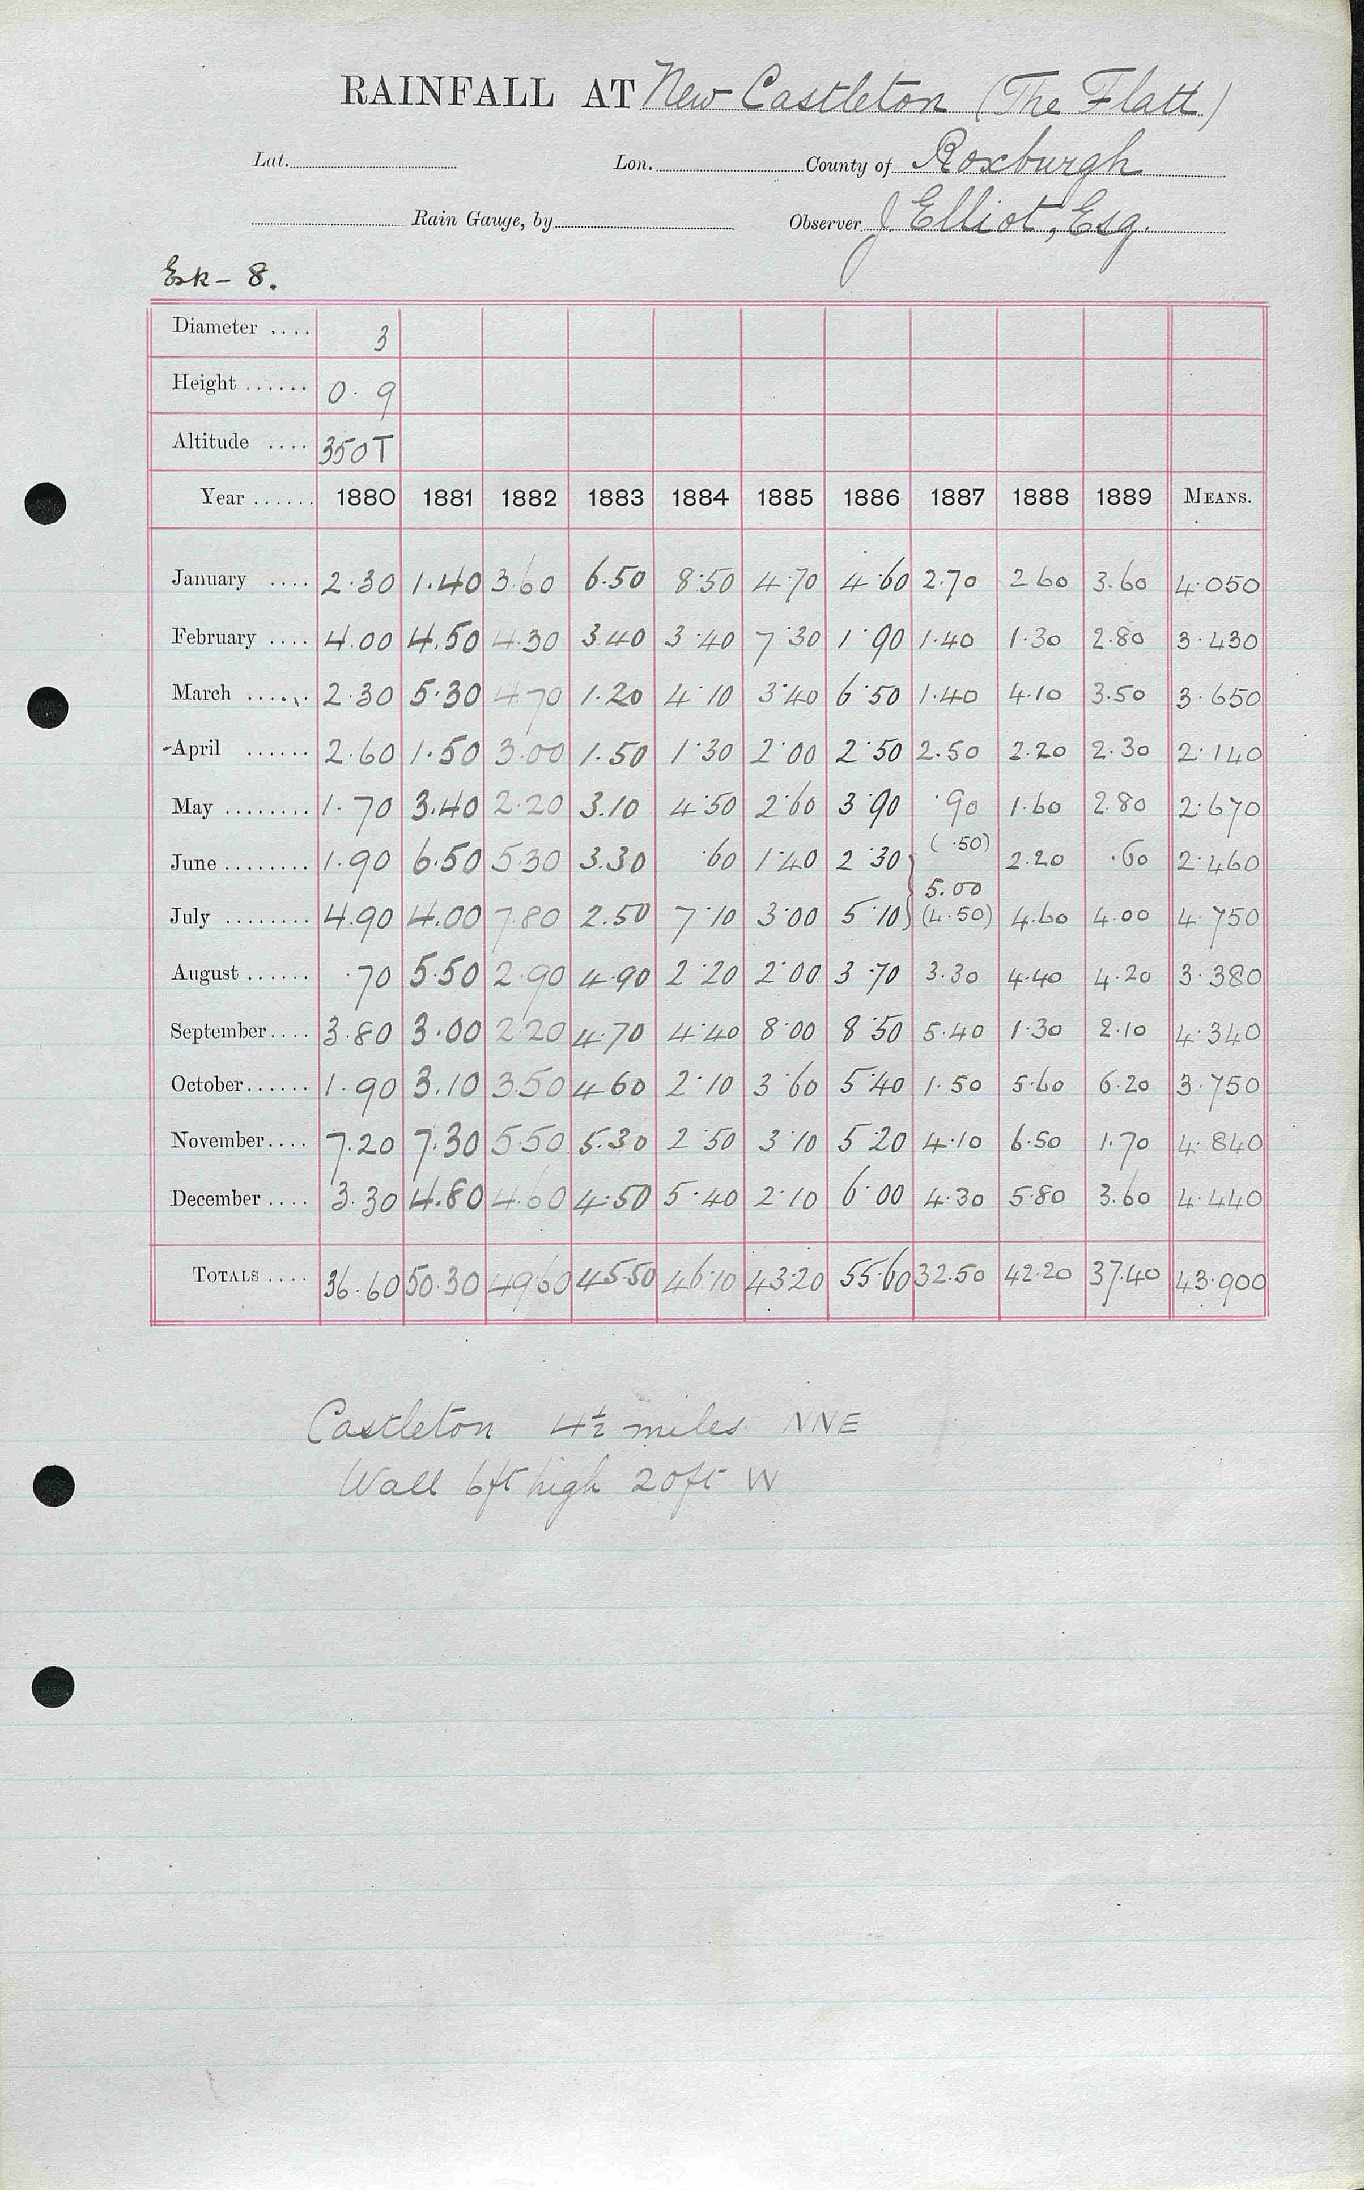 RAINFALL AT New Castleton (The Flatt)
Lat. Lon. County of Roxburgh
Rain Gauge, by Observer J Elliot, Esq.
Esk - 8.
Diameter .... 3
Height ...... 0. 9
Altitude .... 350T
Year ...... 1880 1881 1882 1883 1884 1885 1886 1887 1888 1889 MEANS.
January .... 2.30 1.40 3.60 6.50 8.50 4.70 4.60 2.70 2.60 3.60 4.050
February .... 4.00 4.50 4.30 3.40 3.40 7.30 1.90 1.40 1.30 2.80 3.430
March ...... 2.30 5.30 4.70 1.20 4.10 3.40 6.50 1.40 4.10 3.50 3.650
April ...... 2.60 1.50 3.00 1.50 1.30 2.00 2.50 2.50 2.20 2.30 2.140
May ........ 1.70 3.40 2.20 3.10 4.50 2.60 3.90 .90 1.60 2.80 2.670
June ........ 1.90 6.50 5.30 3.30 .60 1.40 2.30 (.50) 2.20 .60 2.460
5.00
July ........ 4.90 4.00 7.80 2.50 7.10 3.00 5.10 (4.50) 4.60 4.00 4.750
August ...... .70 5.50 2.90 4.90 2.20 2.00 3.70 3.30 4.40 4.20 3.380
September .... 3.80 3.00 2.20 4.70 4.40 8.00 8.50 5.40 1.30 2.10 4.340
October ...... 1.90 3.10 3.50 4.60 2.10 3.60 5.40 1.50 5.60 6.20 3.750
November .... 7.20 7.30 5.50 5.30 2.50 3.10 5.20 4.10 6.50 1.70 4.840
December .... 3.30 4.80 4.60 4.50 5.40 2.10 6.00 4.30 5.80 3.60 4.440
TOTALS .... 36.60 50.30 49.60 45.50 46.10 43.20 55.60 32.50 42.20 37.40 43.900
Castleton 4½ miles NNE
Wall 6ft high 20ft W